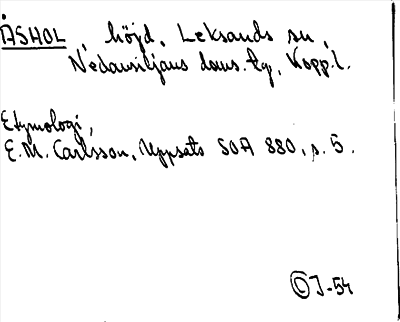 ÅSHOL, höjd, Leksands sn,
Nedansiljans doms. tg, Kopp.l.
Etymologi,
E.M. Carlsson, Uppsats SOA 880, s. 5.